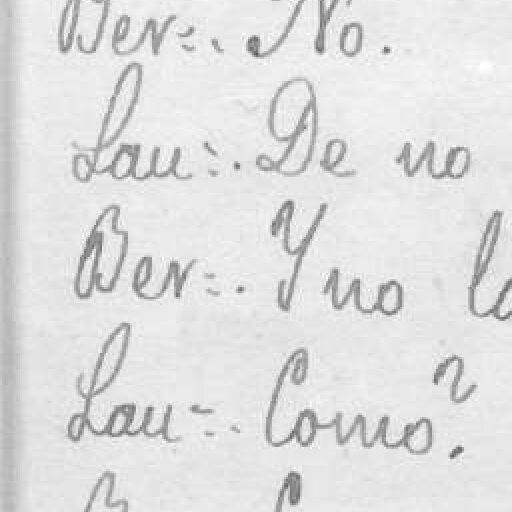 Ber=. No.
Lau=. De no
Ber=. Y no
Lau=. Como?